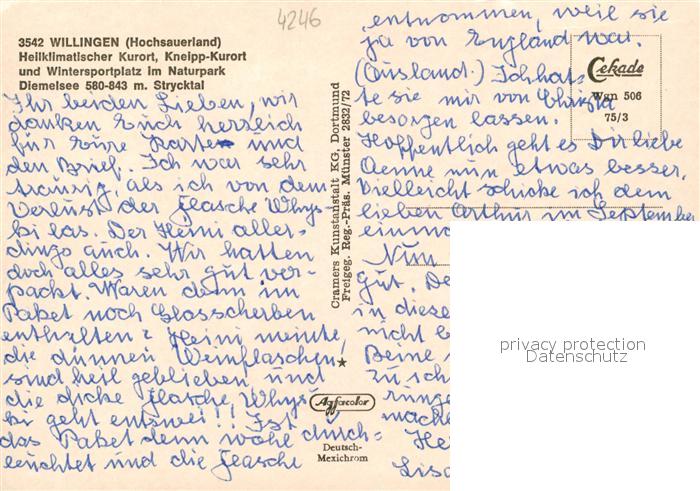 4246
3542 WILLINGEN (Hochsauerland)
Heilklimatischer Kurort, Kneipp-Kurort
und Wintersportplatz im Naturpark
Diemelsee 580-843 m. Strycktal
Ihr beiden Lieben, wir
danken Euch herzlich
für Eure Karte und
den Brief. Ich war sehr
traurig, als ich von dem
Verlust der Flasche Whys-
ki las. Der Heini aller-
dings auch. Wir hatten
doch alles sehr gut ver-
packt. Waren denn im
Paket noch Glasscherben
enthalten? Heini meinte,
die dünnen Weinflaschen
sind heil geblieben und
die dicke Flasche Whys-
ki geht entzwei!! Ist
das Paket denn durch-
leuchtet und die Flasche
Cramers Kunstanstalt KG, Dortmund
Freigeg. Reg.-Präs. Münster 2832/72
Agfacolor
Deutsch-
Mexichrom
entnommen, weil sie
ja von England war.
(Ausland.) Ich hat-
te sie mir von Christa
besorgen lassen.
Hoffentlich geht es Dir liebe
Aenne nun etwas besser.
Vielleicht schicke ich dem
lieben Arthur im September
einma
Nun
gut. De
in diese
nicht b
Beine
zu ich
runge
mache
He
Lisa
Cekade
Wgn 506
75/3
privacy protection
Datenschutz